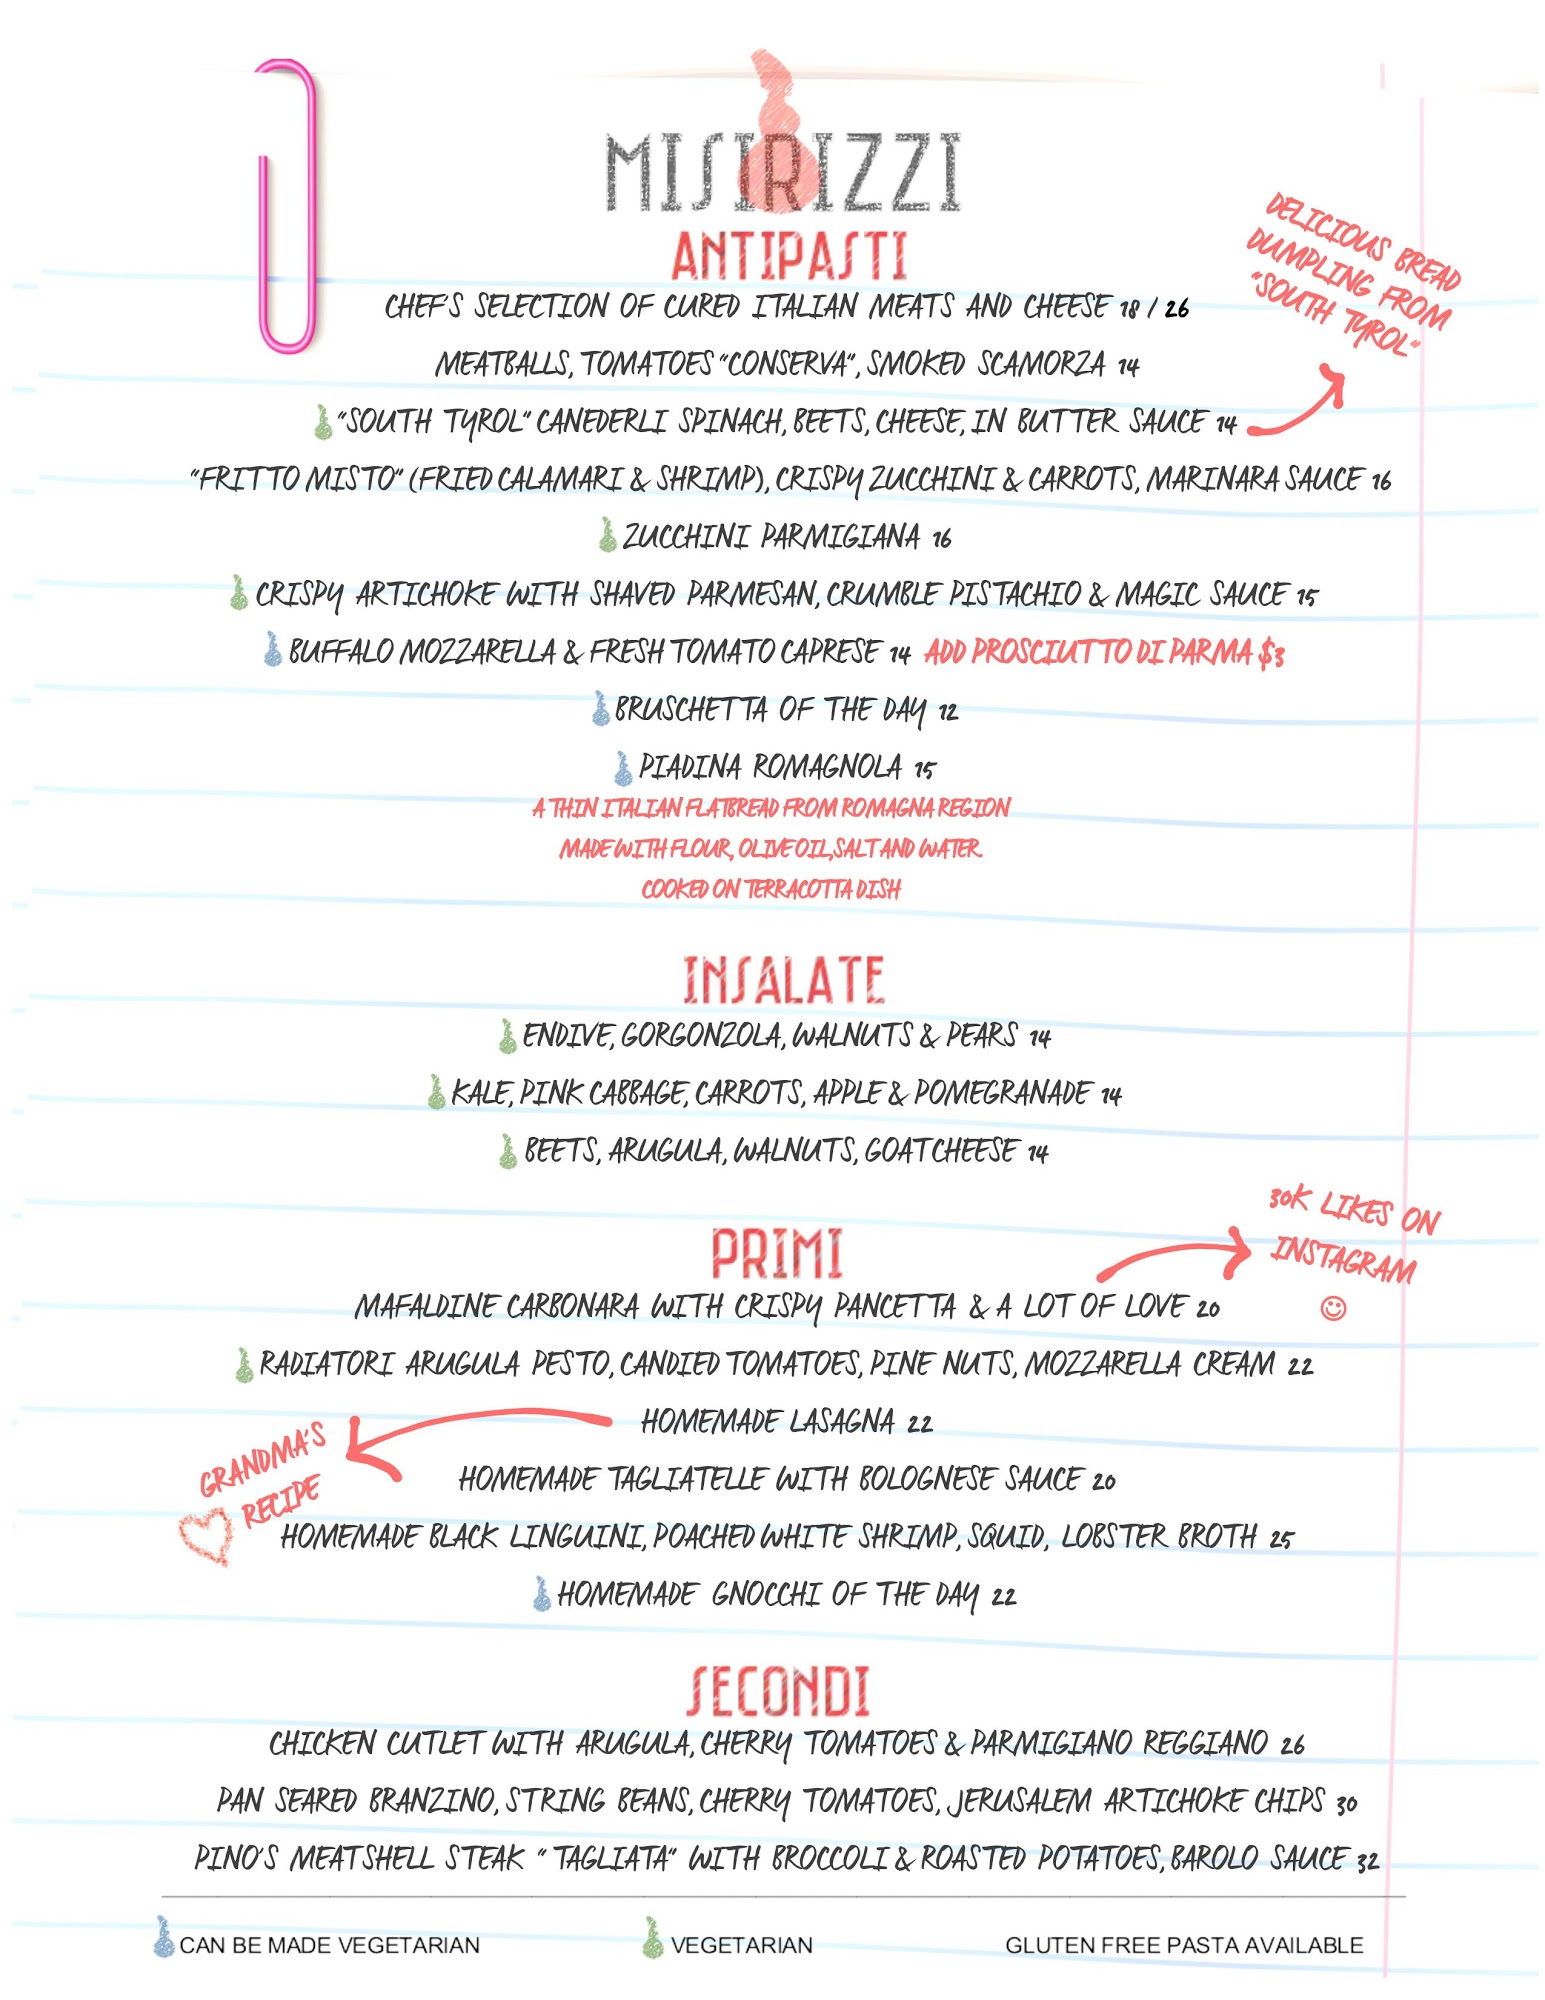 MISIRIZZI
ANTIPASTI
DELICIOUS BREAD
DUMPLING FROM
"SOUTH TYROL"
CHEF'S SELECTION OF CURED ITALIAN MEATS AND CHEESE 18 / 26
MEATBALLS, TOMATOES "CONSERVA", SMOKED SCAMORZA 14
"SOUTH TYROL" CANEDERLI SPINACH, BEETS, CHEESE, IN BUTTER SAUCE 14
"FRITTO MISTO" (FRIED CALAMARI & SHRIMP), CRISPY ZUCCHINI & CARROTS, MARINARA SAUCE 16
ZUCCHINI PARMIGIANA 16
CRISPY ARTICHOKE WITH SHAVED PARMESAN, CRUMBLE PISTACHIO & MAGIC SAUCE 15
BUFFALO MOZZARELLA & FRESH TOMATO CAPRESE 14 ADD PROSCIUTTO DI PARMA $3
BRUSCHETTA OF THE DAY 12
PIADINA ROMAGNOLA 15
A THIN ITALIAN FLATBREAD FROM ROMAGNA REGION
MADE WITH FLOUR, OLIVE OIL,SALT AND WATER.
COOKED ON TERRACOTTA DISH
INSALATE
ENDIVE, GORGONZOLA, WALNUTS & PEARS 14
KALE, PINK CABBAGE, CARROTS, APPLE & POMEGRANADE 14
BEETS, ARUGULA, WALNUTS, GOAT CHEESE 14
PRIMI
30K LIKES ON
INSTAGRAM
☺
MAFALDINE CARBONARA WITH CRISPY PANCETTA & A LOT OF LOVE 20
RADIATORI ARUGULA PESTO, CANDIED TOMATOES, PINE NUTS, MOZZARELLA CREAM 22
HOMEMADE LASAGNA 22
GRANDMA'S
RECIPE
HOMEMADE TAGLIATELLE WITH BOLOGNESE SAUCE 20
HOMEMADE BLACK LINGUINI, POACHED WHITE SHRIMP, SQUID, LOBSTER BROTH 25
HOMEMADE GNOCCHI OF THE DAY 22
SECONDI
CHICKEN CUTLET WITH ARUGULA, CHERRY TOMATOES & PARMIGIANO REGGIANO 26
PAN SEARED BRANZINO, STRING BEANS, CHERRY TOMATOES, JERUSALEM ARTICHOKE CHIPS 30
PINO'S MEATSHELL STEAK " TAGLIATA" WITH BROCCOLI & ROASTED POTATOES, BAROLO SAUCE 32
CAN BE MADE VEGETARIAN
VEGETARIAN
GLUTEN FREE PASTA AVAILABLE